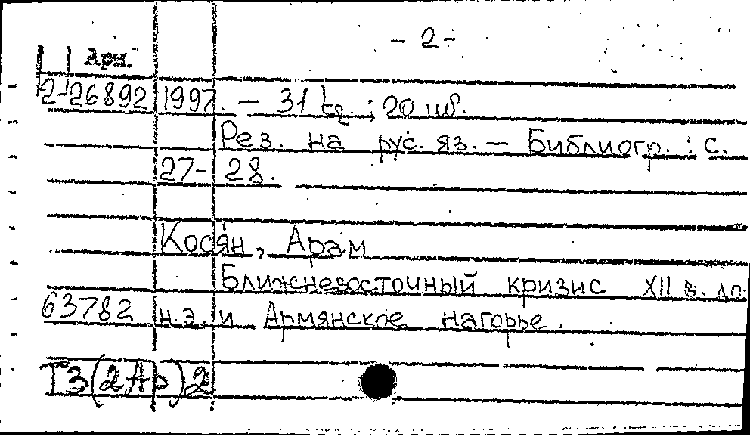 - 2 -
Арм.
2-26892 1997. - 31 էջ ; 20 սմ.
Рез. на рус. яз. - Библиогр. : с.
27- 28.
Косян, Арам
Ближневосточный кризис XII в. до
63782 н.э. и Армянское нагорье.
Т3(2Ар)2